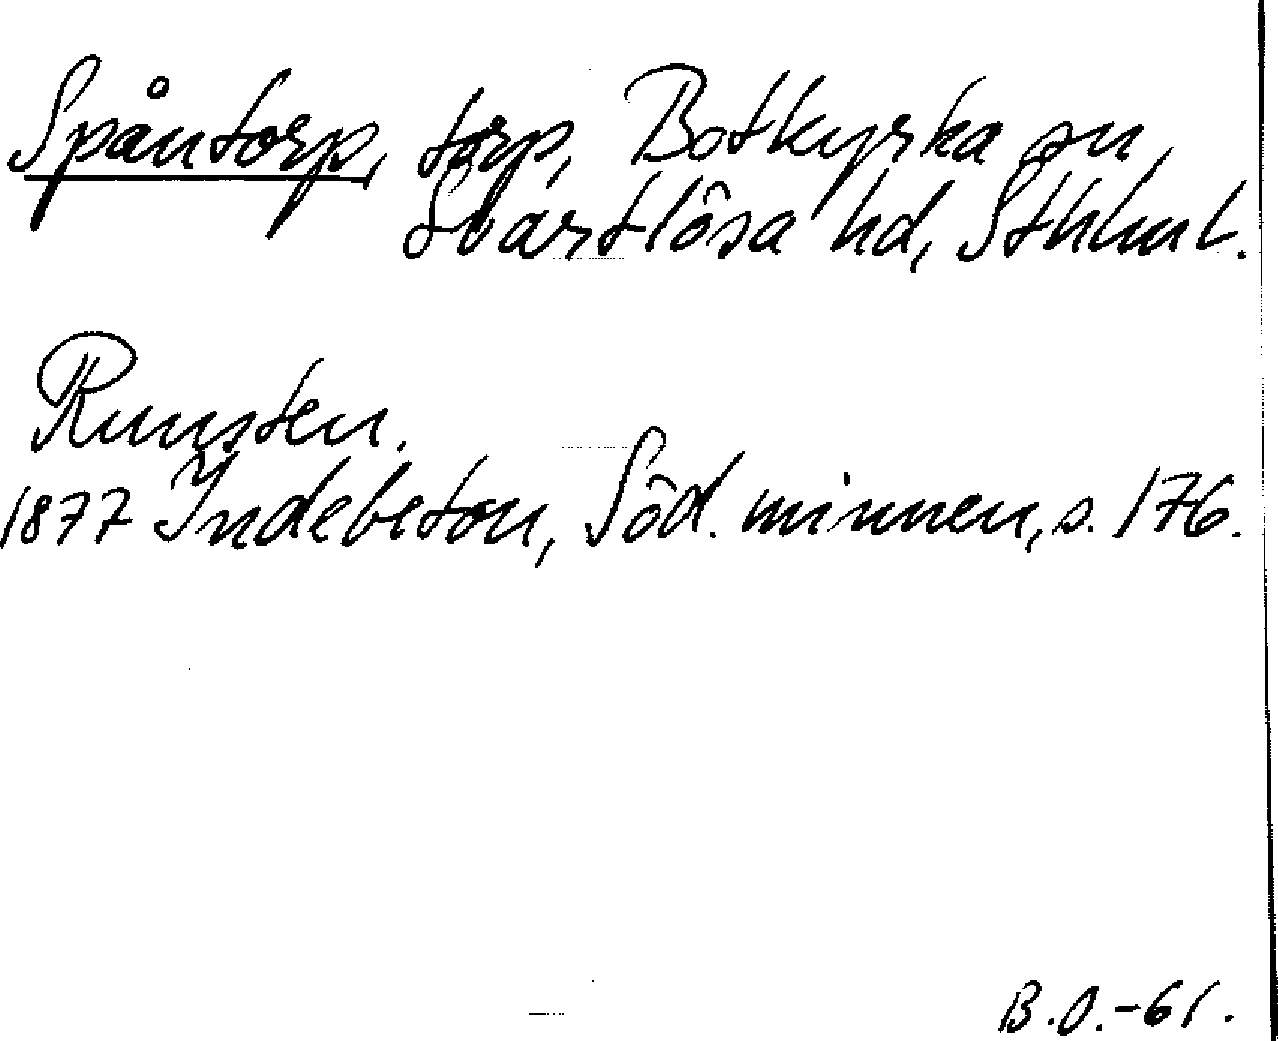 Spåntorp, torp, Botkyrka sn,
Svartlösa hd, Sthlm l.
Runsten.
1877 Indebetou, Söd. minnen, s. 176.
B.O.-61.